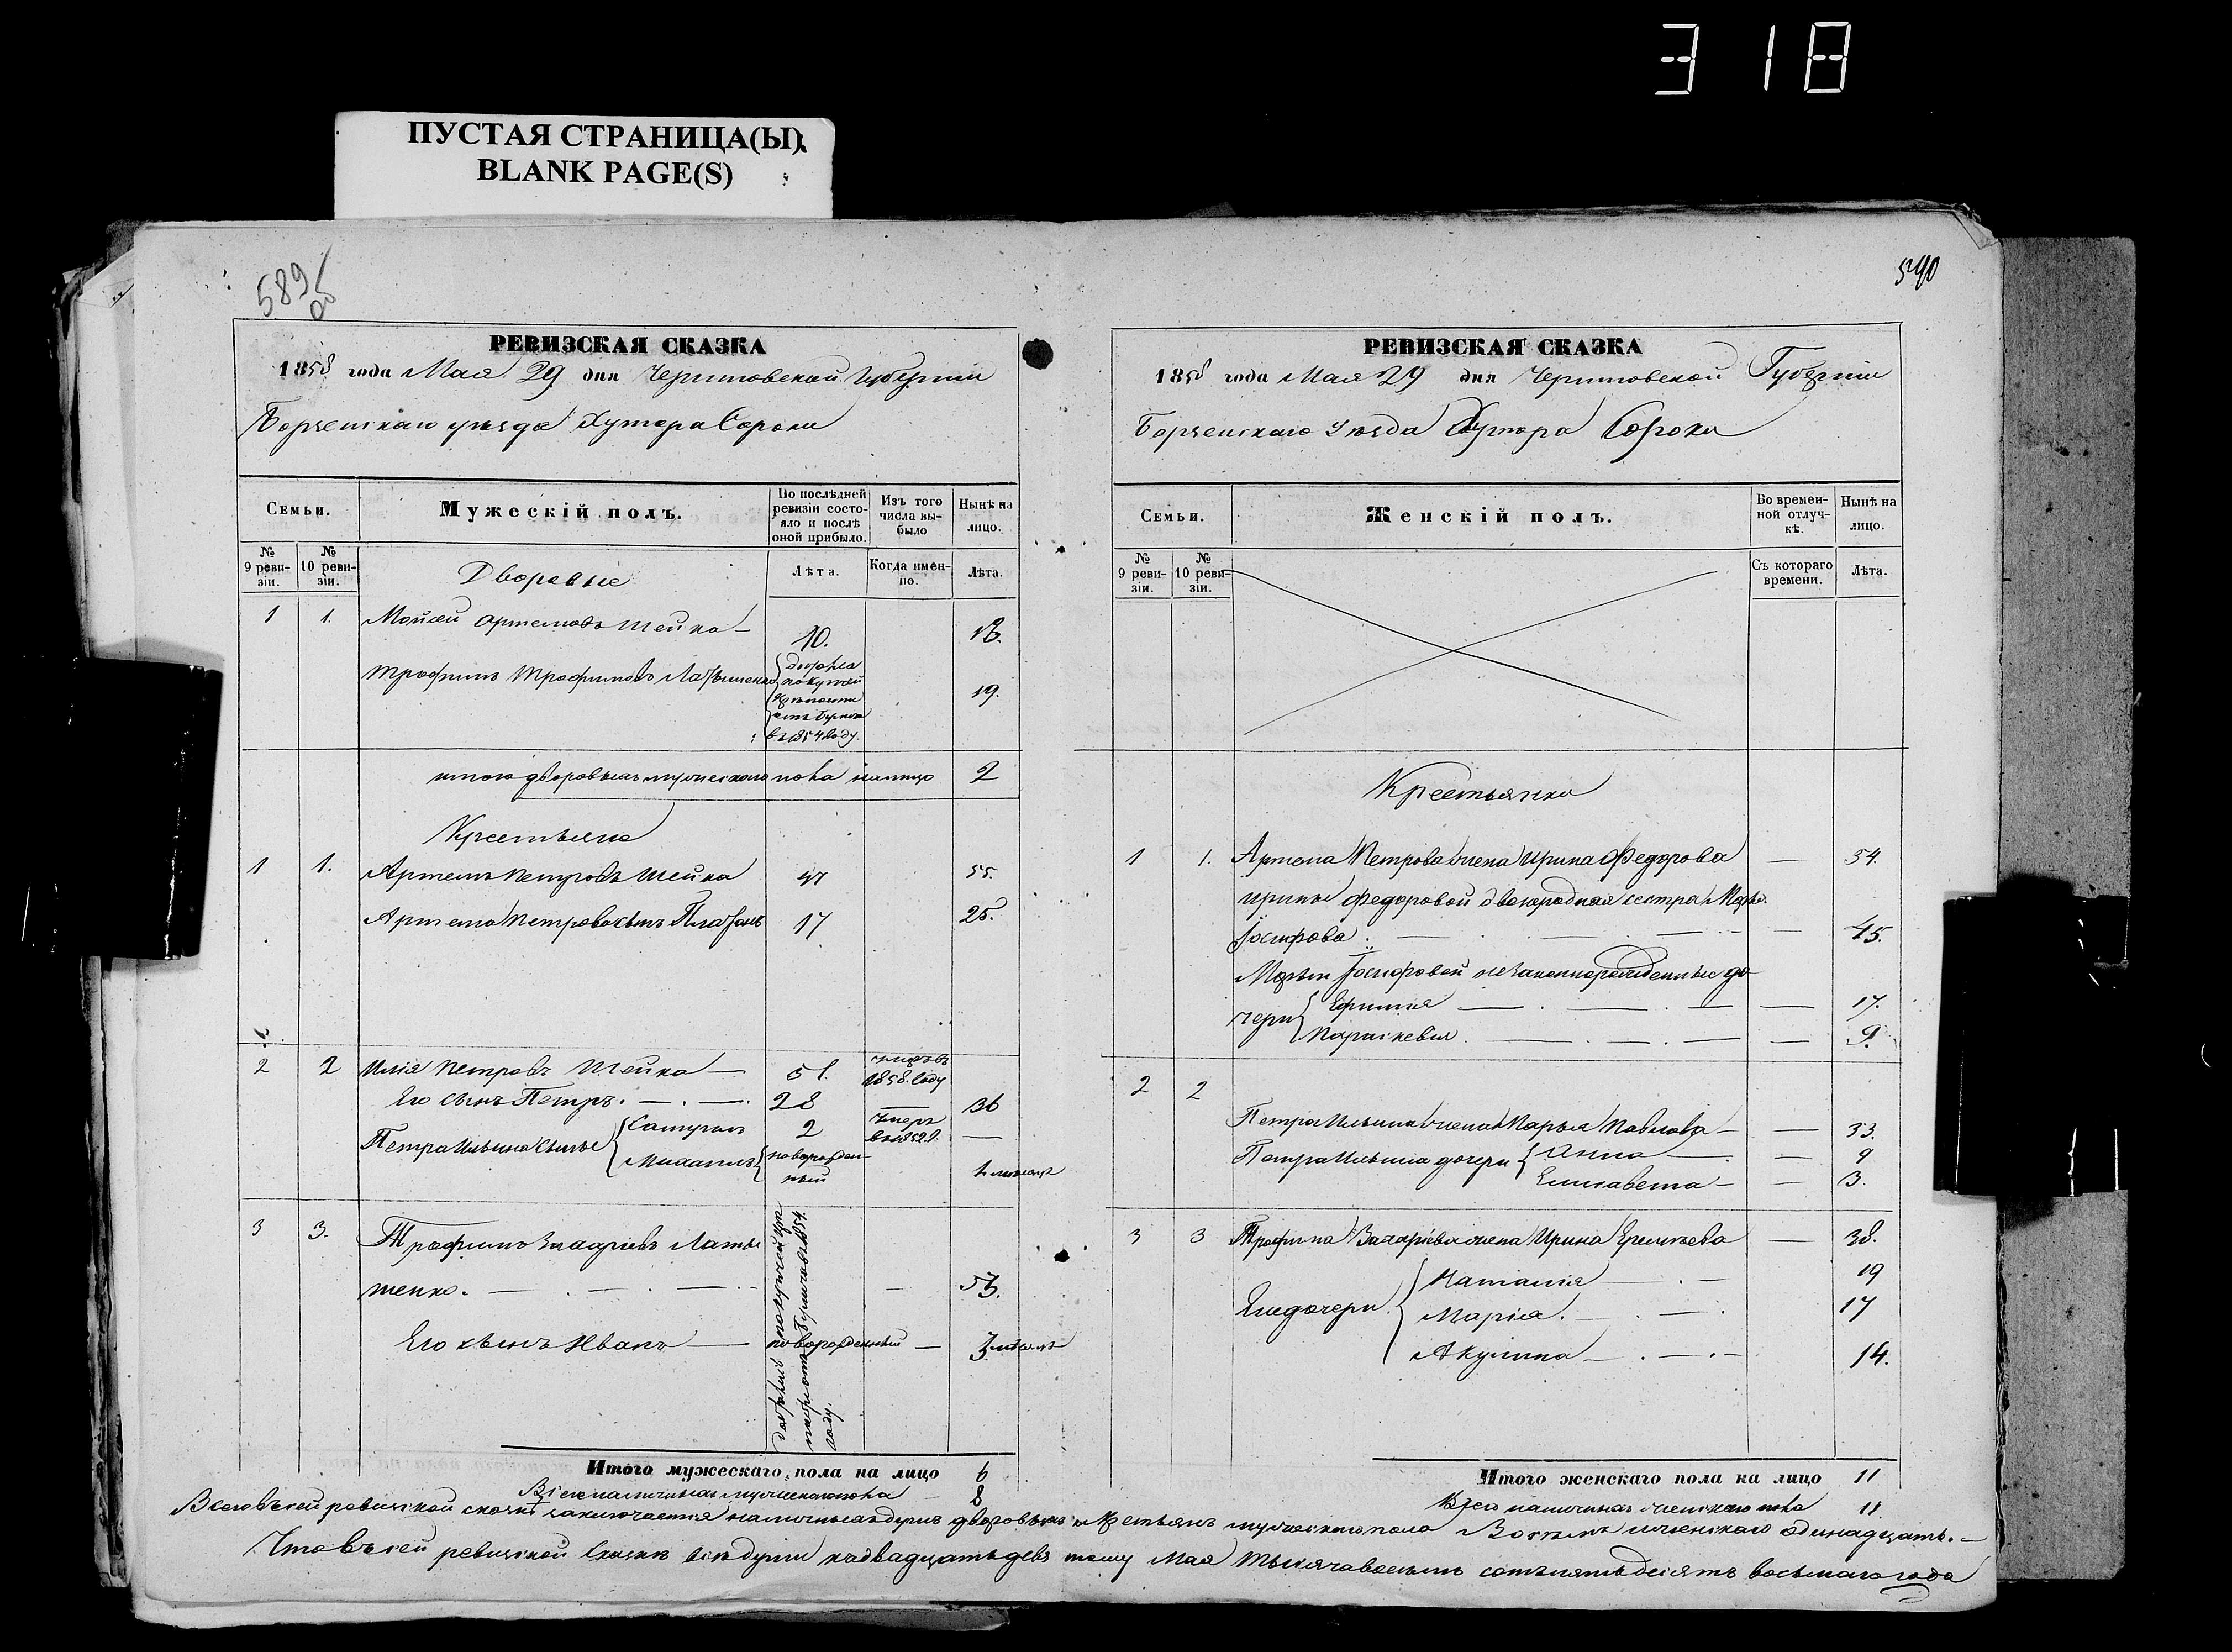 318
ПУСТАЯ СТРАНИЦА(Ы)
BLANK PAGE(S)
589 об
590
РЕВИЗСКАЯ СКАЗКА
1858 года Мая 29 дня Черниговской Губернии
Борзенскаго уезда Хутора Сороки
Семьи.
Мужескій полъ.
По послѣдней ревизіи состояло и послѣ оной прибыло.
Изъ того числа выбыло
Нынѣ на лицо.
№ 9 ревизіи.
№ 10 ревизіи.
Лѣта.
Когда именно.
Лѣта.
Дворовые
1 1. Мойсей Артемовъ Шейка — 10. 18.
Трофимъ Трофимовъ 19.
въ 1854 году.
итого дворовыхъ мужескаго пола налицо 2
Крестьяне
1 1. Артемъ Петровъ Шейка 47 55.
Артема Петрова сынъ Платонъ 17 25.
2 2 Илія Петровъ Шейка — 51. 1858. году
Его сынъ Петръ. — . — . 28 — 36
Петра Ильина сынъ { 2 умеръ въ 1852 г. —
Михаилъ { новорожденный
3 3. Трофимъ Захаріевъ Латы
шенко. — . — . — — 53.
Его сынъ Иванъ — новорожденный — 3 месяца
Итого мужескаго пола на лицо 6
Всего наличныхъ мужескаго пола 8
РЕВИЗСКАЯ СКАЗКА
1858 года Мая 29 дня Черниговской Губерніи
Борзенскаго Уезда Хутора Сороки
Семьи.
Женскій полъ.
Во временной отлучкѣ.
Нынѣ на лицо.
№ 9 ревизіи.
№ 10 ревизіи.
Съ котораго времени.
Лѣта.
Крестьянки
1 1. Артема Петрова жена Ирина Федорова — 54.
Ирины Федоровой двоюродная сестра Марья
Іосифова. — . — . — — 45.
Марьи Іосифовой незаконнорожденные до
чери { Ефимія — . — . — — 17.
Параскевия. — . — . — — 9.
2 2
Петра Ильина жена Марья Павлова — — 33.
Петра Ильина дочери { Анна — . — 9
Елисавета — — 3.
3 3 Трофима Захаріева жена Ирина Еремѣева — 38.
Ея дочери { Наталія — . — 19
Марія. — . — . 17
Акулина — . — . — 14.
Итого женскаго пола на лицо 11
Всего наличныхъ женскаго пола 11
Всего въ сей ревизской сказкѣ заключается наличныхъ душъ дворовыхъ и крестьянъ мужескаго пола Восемь женскаго одинадцать. —
Что въ сей ревизской сказкѣ всѣ души къ двадцать девятому Мая тысяча восемь сотъ пятьдесятъ восьмаго года